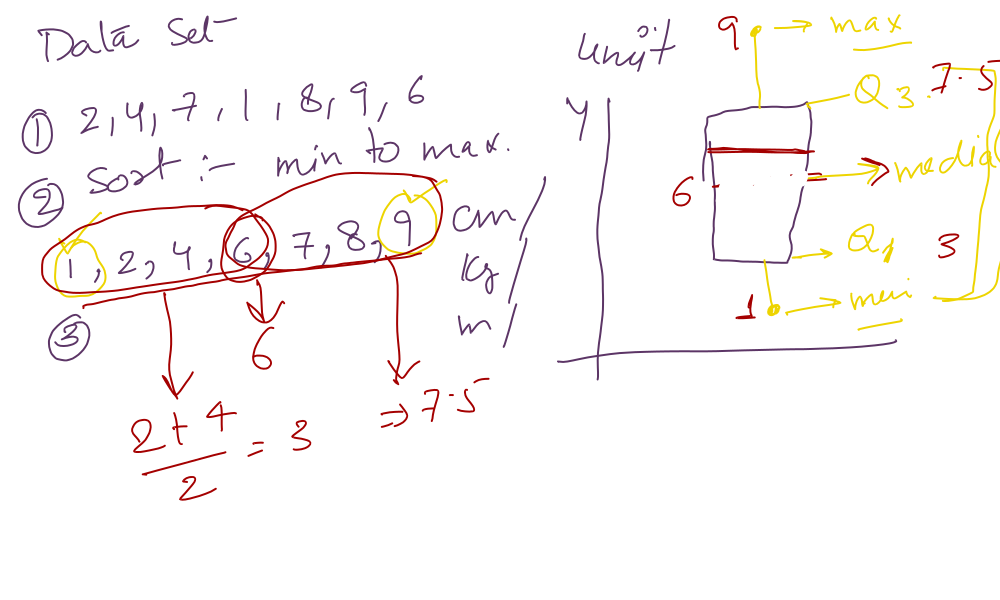 Data Set
① 2, 4, 7, 1, 8, 9, 6
② Sort :- min to max.
1, 2, 4, 6, 7, 8, 9
cm/
kg/
m/
③
6
2+4
2
= 3
=> 7.5
unit
Y
9 → max
Q3 7.5
6 → media
Q1 3
1 → min